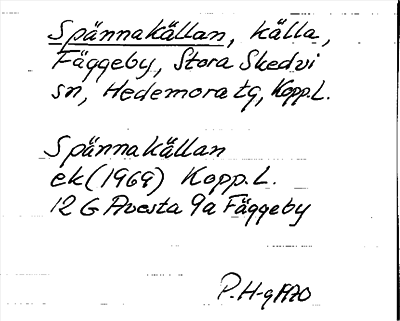 Spännakällan, källa,
Fäggeby, Stora Skedvi
sn, Hedemora tg, Kopp.L.
Spännakällan
ek (1969) Kopp.L.
12 G Avesta 9a Fäggeby
P.H-g 1970